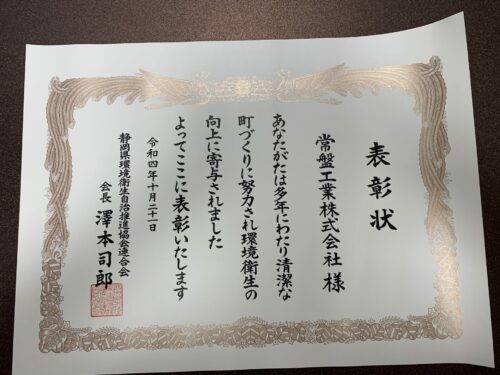 表彰状
常盤工業株式会社 様
あなたがたは多年にわたり清潔な
町づくりに努力され環境衛生の
向上に寄与されました
よってここに表彰いたします
令和四年十月二十一日
静岡県環境衛生自治推進協会連合会
会長 澤本司郎